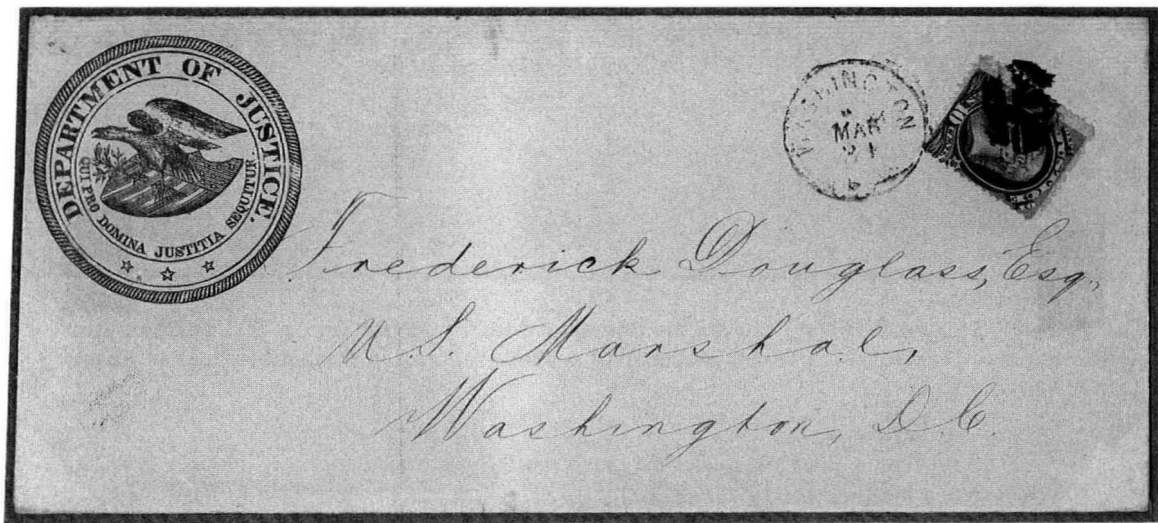 DEPARTMENT OF JUSTICE.
QUI PRO DOMINA JUSTITIA SEQUITUR
WASHINGTON
MAR
21
Frederick Douglass, Esq.,
U.S. Marshal,
Washington, D.C.